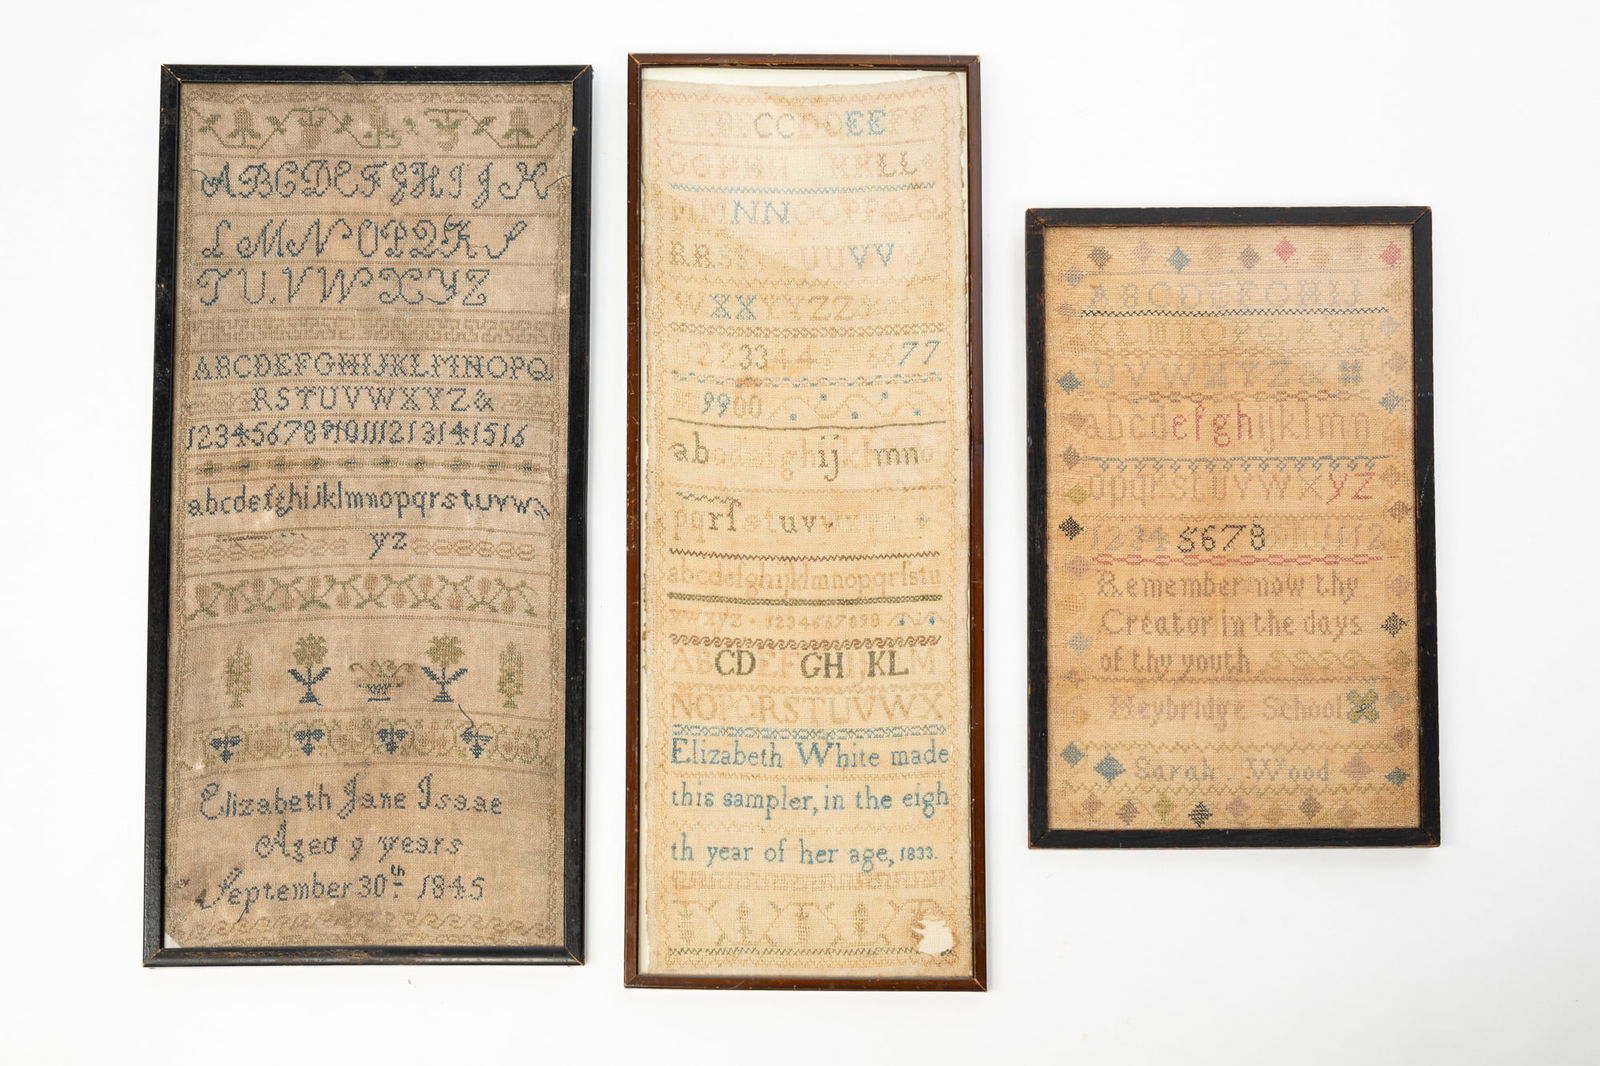 ABCDEFGHIJK
LMNOPQRS
TUVWXYZ
ABCDEFGHIJKLMNOPQ
RSTUVWXYZ&
12345678910111213141516
abcdefghijklmnopqrstuvw
yz
Elizabeth Jane Isaac
Aged 9 years
September 30th 1845
CC EE FF
LL
MM NN
RR SS UU VV
W XX YY ZZ
22 33 44 77
99 00
ab gh ij k l m n
pq r ſ s t u v w
abcdefghijklmnopqrſstu
vwxyz 1234567890
AB CD EF GH KL M
NO RSTUVWX
Elizabeth White made
this sampler, in the eigh
th year of her age, 1833.
ABCDEFGHIJ
UVWXYZ&
abcdefghijklmn
opqrstuvwxyz
12345678 1112
Remember now thy
Creator in the days
of thy youth
Heybridge School
Sarah Wood